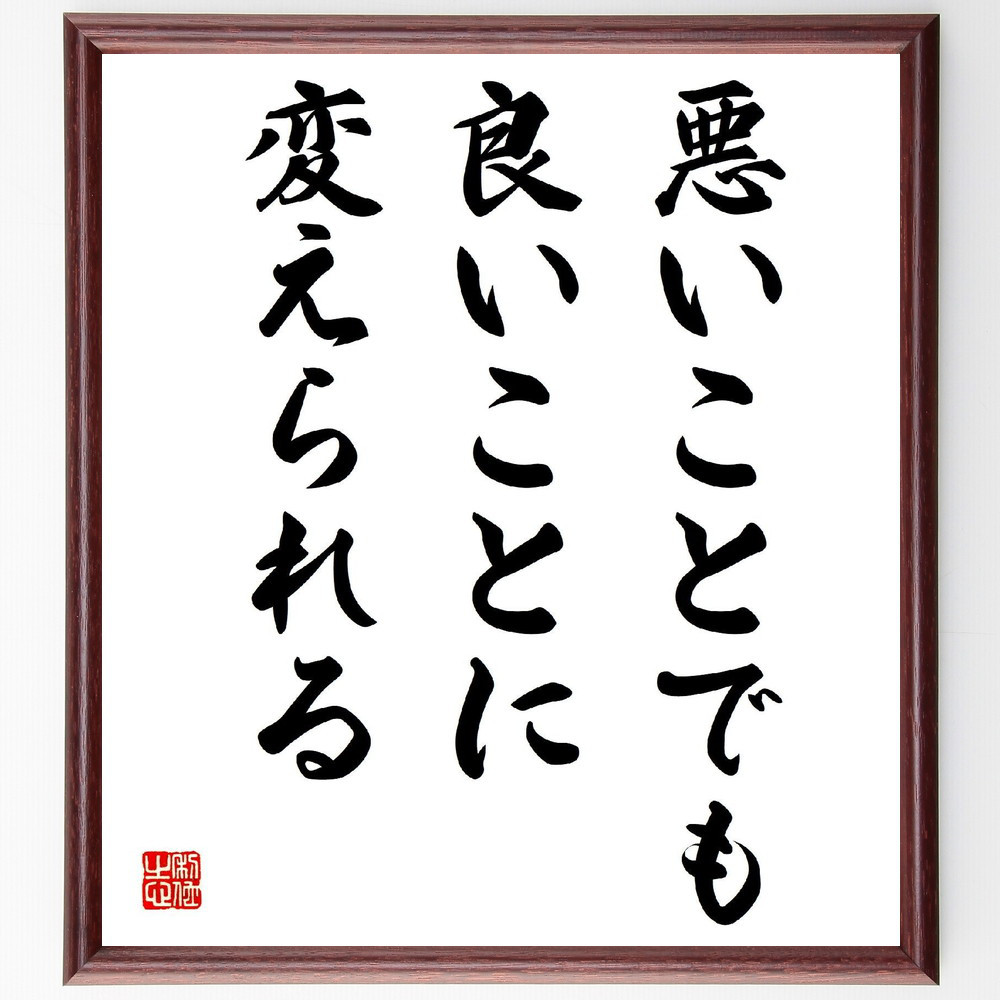 悪いことでも
良いことに
変えられる